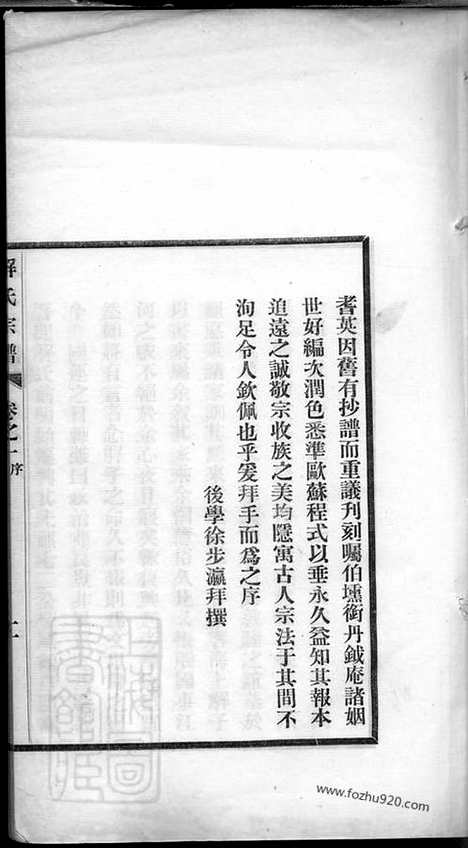 耆英因舊有抄譜而重議刊刻囑伯壎銜丹鉞庵諸姻
世好編次潤色悉準歐蘇程式以垂永久益知其報本
追遠之誠敬宗收族之美均隱寓古人宗法于其間不
洵足令人欽佩也乎爰拜手而爲之序
後學徐步瀛拜撰
氏宗譜
卷之一序
www.fozhu920.com